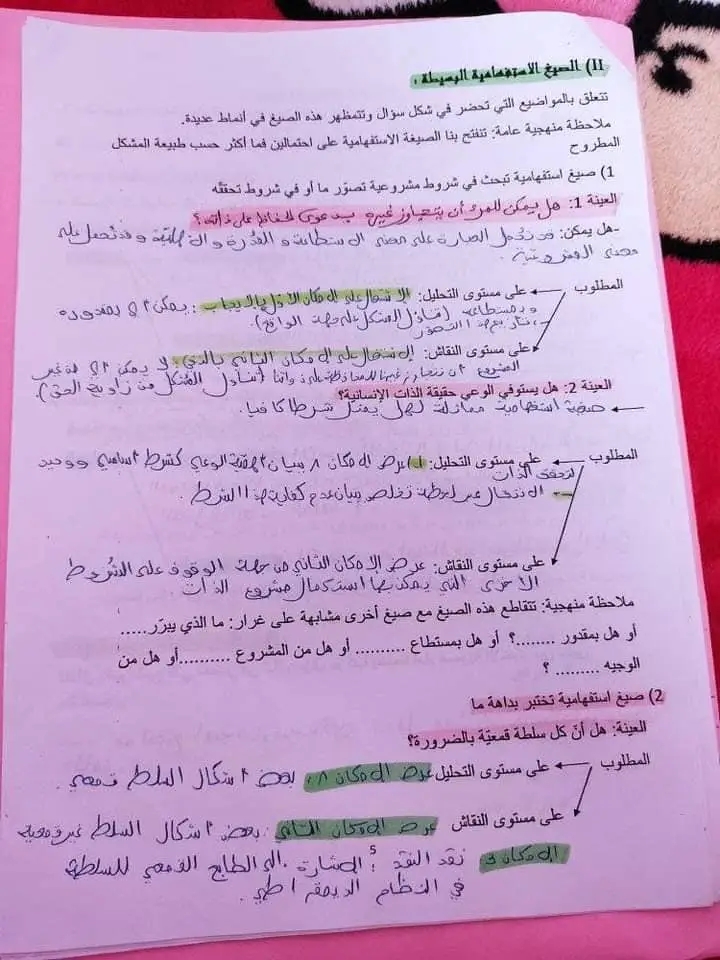 II) الصيغ الاستفهامية البسيطة :
تتعلق بالمواضيع التي تحضر في شكل سؤال وتتمظهر هذه الصيغ في أنماط عديدة.
ملاحظة منهجية عامة: تنفتح بنا الصيغة الاستفهامية على احتمالين فما أكثر حسب طبيعة المشكل
المطروح
1) صيغ استفهامية تبحث في شروط مشروعية تصوّر ما أو في شروط تحققه
العينة 1: هل يمكن للمرء أن يتجاوز غيره بدعوى الحفاظ على ذاته ؟
-هل يمكن: قد تحمل العبارة على معنى الاستطاعة و القدرة و الأهلية و قد تحمل على
معنى المشروعية
المطلوب
على مستوى التحليل: الاشتغال على الإمكان الأول بالإيجاب : يمكن أي بمقدوره
و بمستطاعه (تناول المشكل على جهة الواقع).
على مستوى النقاش: الاشتغال على الإمكان الثاني بالنفي : لا يمكن أي من غير
المشروع أن نتجاوز غيرنا للمحافظة على ذواتنا (تناول المشكل من زاوية الحق).
العينة 2: هل يستوفي الوعي حقيقة الذات الإنسانية؟
صيغة استفهامية مماثلة لهل يمثل شرطا كافيا.
المطلوب
على مستوى التحليل: عرض الإمكان 1 ببيان أهمية الوعي كشرط أساسي ووحيد
لتحقق الذات
- الانتقال عبر لحظة تخلص ببيان عدم كفاية هذا الشرط .
على مستوى النقاش: عرض الإمكان الثاني من جهة الوقوف على الشروط
الأخرى التي يمكن بها استكمال مشروع الذات
ملاحظة منهجية: تتقاطع هذه الصيغ مع صيغ أخرى مشابهة على غرار: ما الذي يبرّر.....
أو هل بمقدور ........؟ أو هل بمستطاع .......... أو هل من المشروع ..........أو هل من
الوجيه ......... ؟
2) صيغ استفهامية تختبر بداهة ما
العينة: هل أنّ كل سلطة قمعيّة بالضرورة؟
المطلوب
على مستوى التحليل عرض الإمكان 1: بعض أشكال السلط قمعي .
على مستوى النقاش عرض الإمكان الثاني : بعض أشكال السلط غير قمعية
الإمكان 3 نقد النقد : الإشارة إلى الطابع القمعي للسلطة
في النظام الديمقراطي .